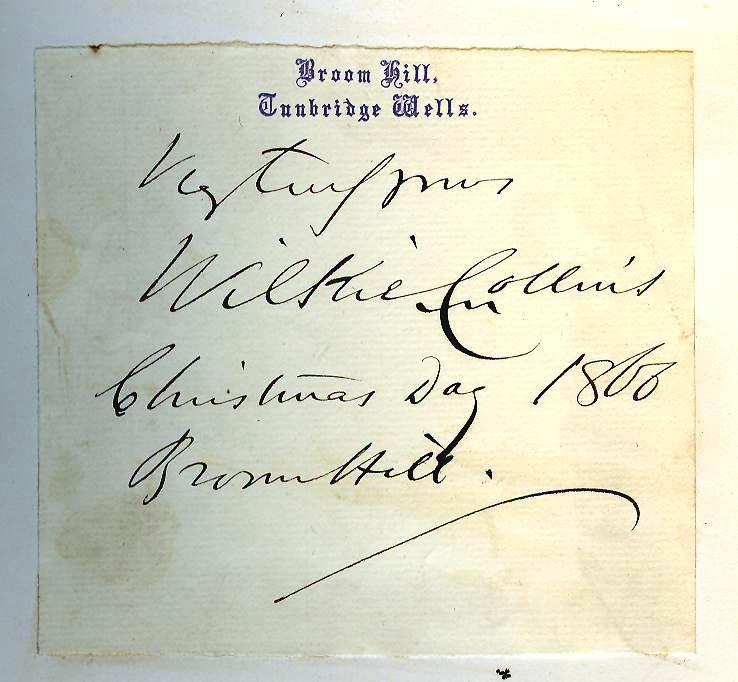 Broom Hill,
Tunbridge Wells.
Very truly yours
Wilkie Collins
Christmas Day 1860
Broom Hill.